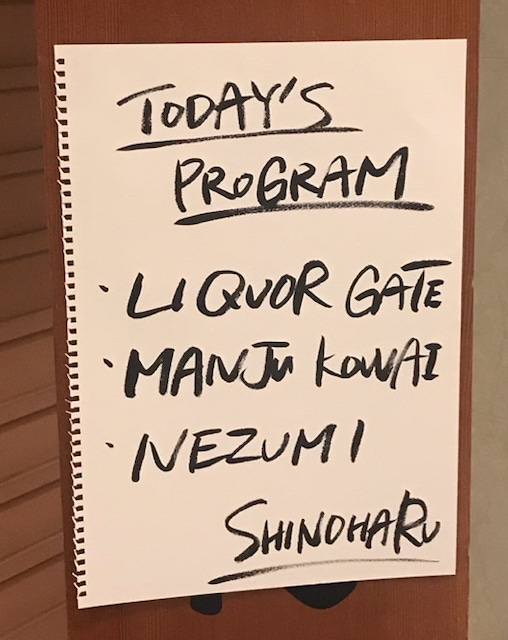 TODAY'S
PROGRAM
· LIQUOR GATE
· MANJU KOWAI
· NEZUMI
SHINOHARU